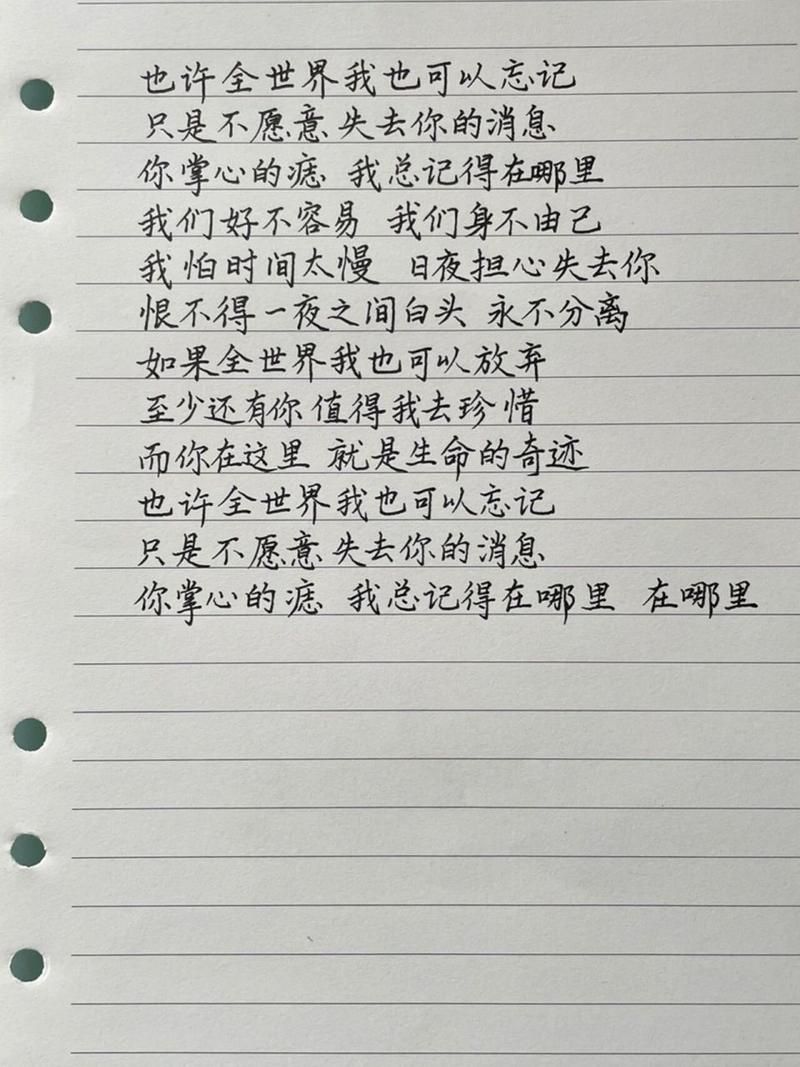 也许全世界我也可以忘记
只是不愿意 失去你的消息
你掌心的痣 我总记得在哪里
我们好不容易 我们身不由己
我怕时间太慢 日夜担心失去你
恨不得一夜之间白头 永不分离
如果全世界我也可以放弃
至少还有你值得我去珍惜
而你在这里 就是生命的奇迹
也许全世界我也可以忘记
只是不愿意 失去你的消息
你掌心的痣 我总记得在哪里 在哪里